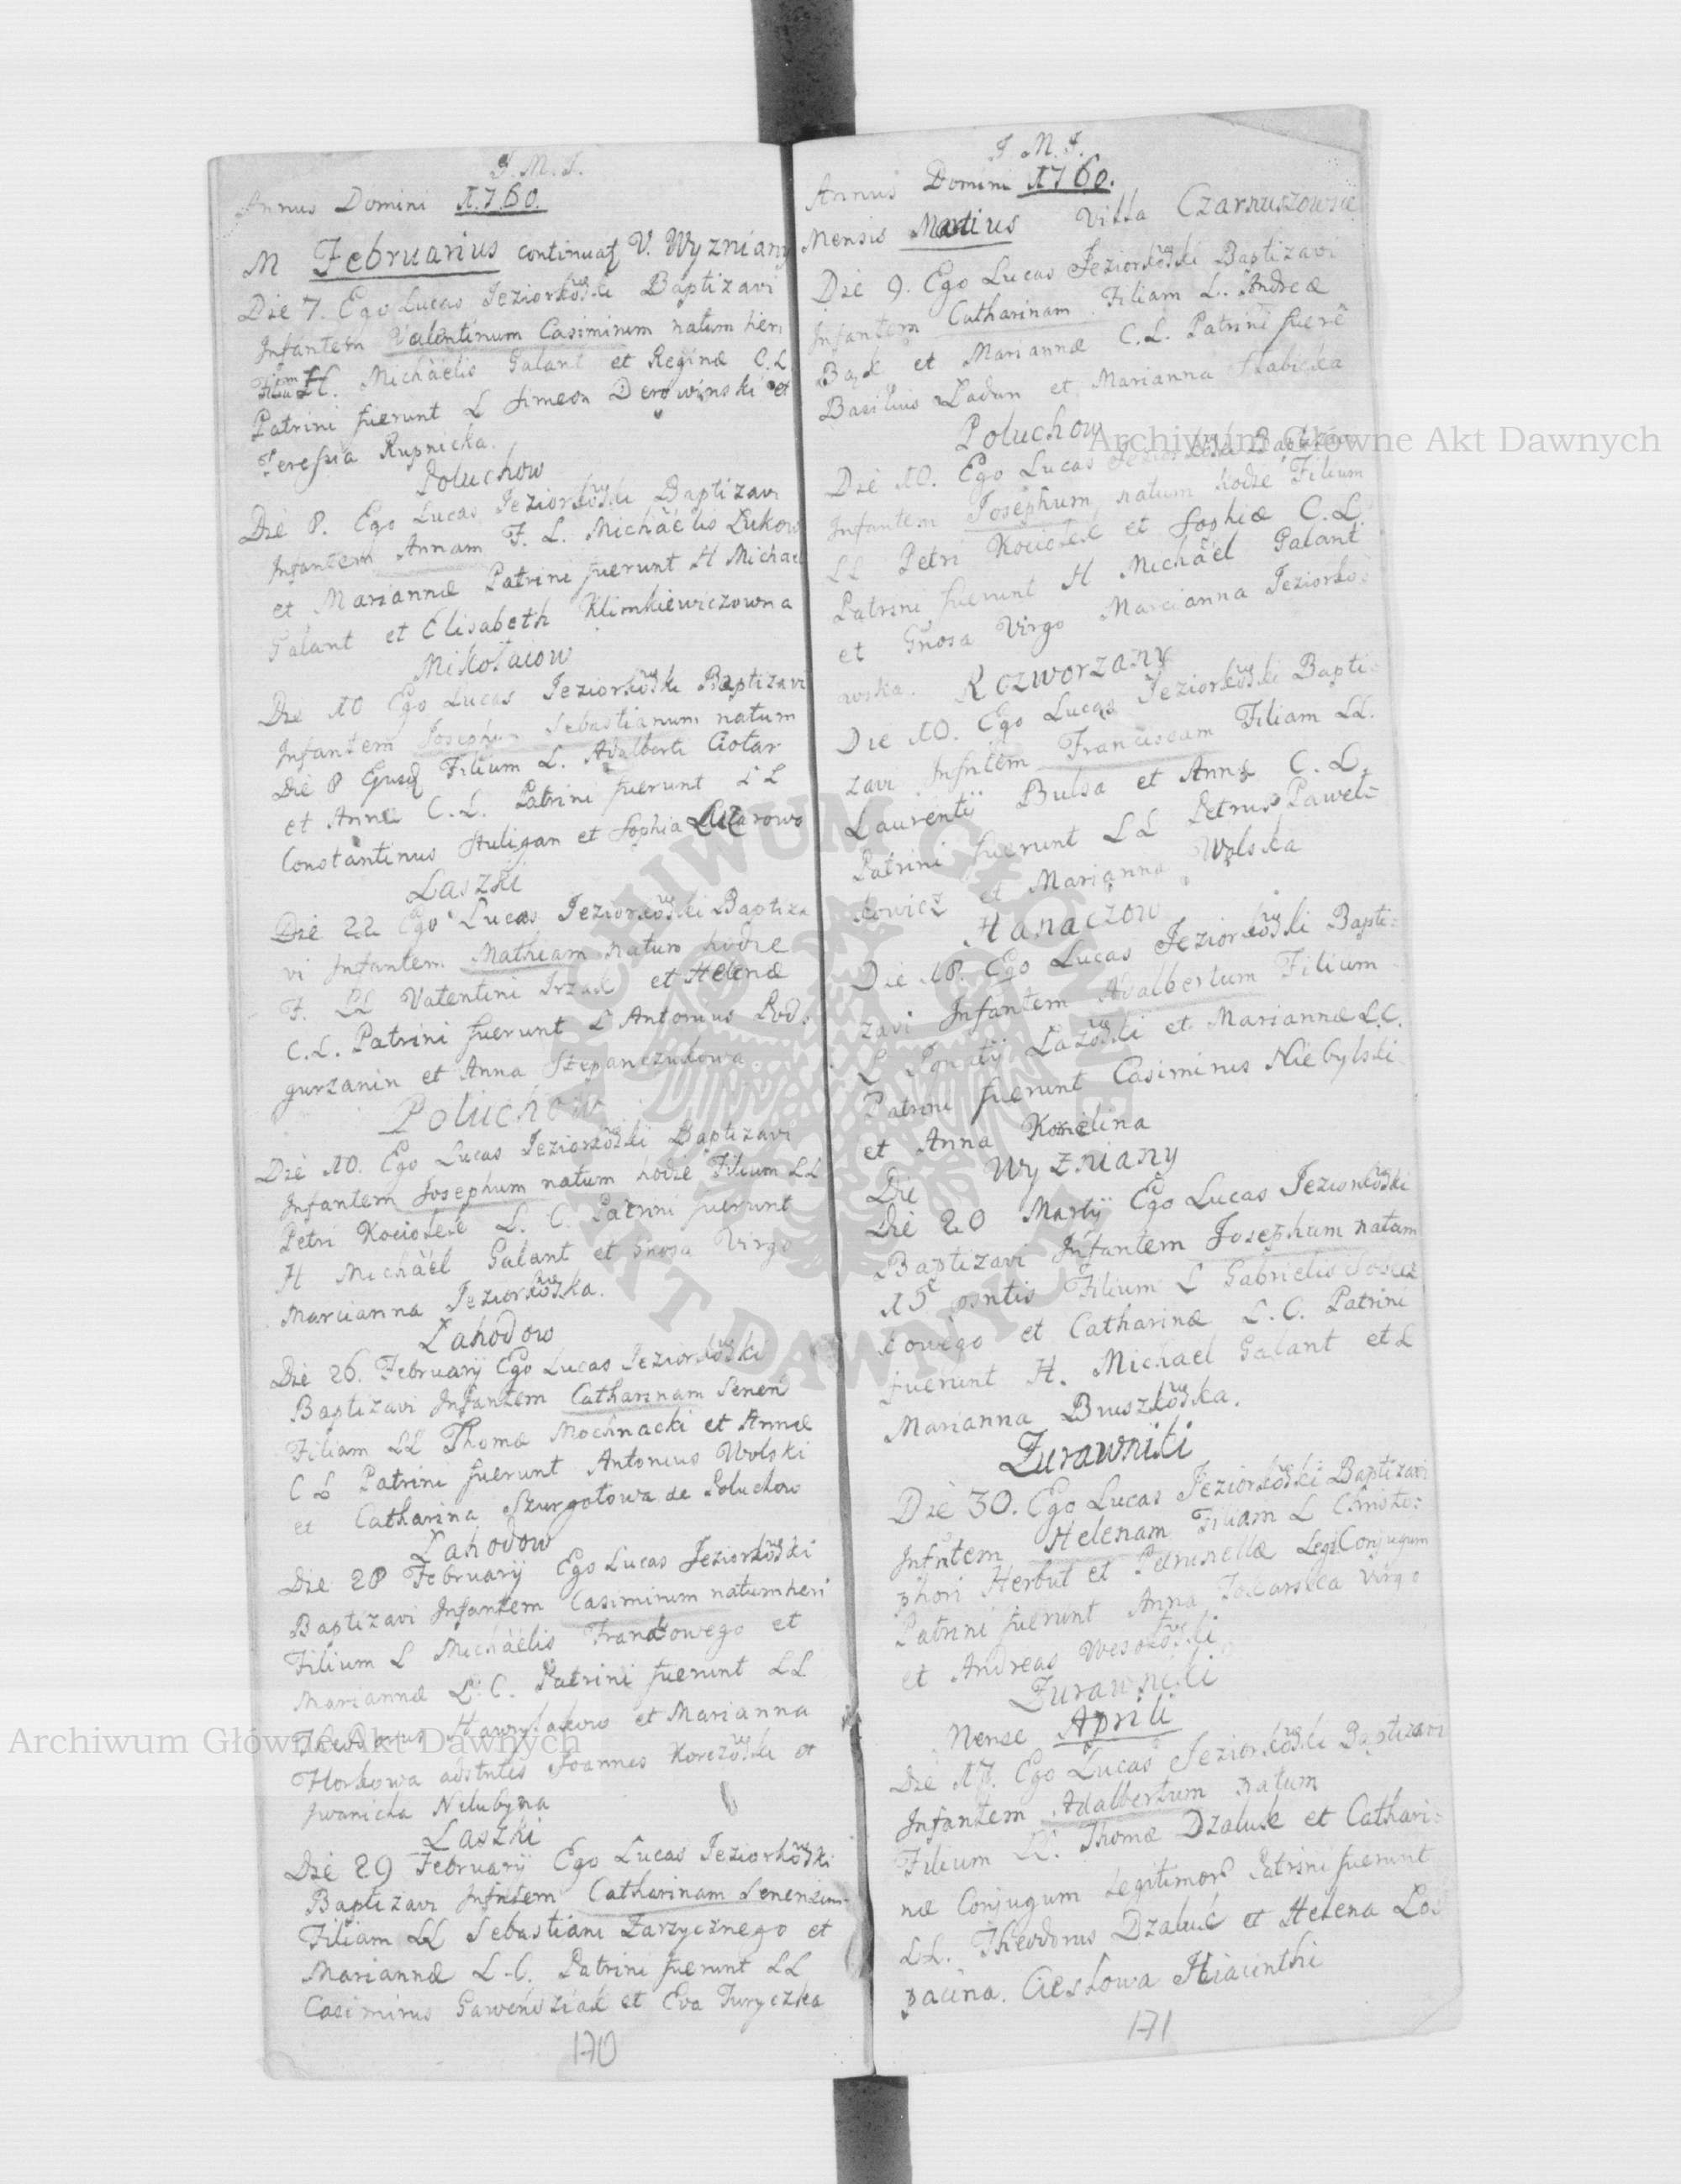 J. M. J.
Annus Domini 1760.
M Februarius continuat V. Wyzniany
Die 7. Ego Lucas Jeziorkowski Baptizavi
Infantem Valentinum Casimirum natum heri
Filium H. Michäelis Galant et Reginæ C. L
Patrini fuerunt L Simeon Derowinski et
Teressia Rupnicka.
Poluchow
Die 8. Ego Lucas Jeziorkowski Baptizavi
Infantem Annam F. L. Michäelis Lukow
et Mariannæ Patrini fuerunt H Michael
Galant et Elisabeth Klimkiewiczowna
Mikołaiow
Die 10 Ego Lucas Jeziorkowski Baptizavi
Infantem Josephum Sebastianum natum
Die 8 Ejusd Filium L. Adalberti Ciotar
et Annæ C. L. Patrini fuerunt LL
Constantinus Huligan et Sophia
Laszki
Die 22 Ego Lucas Jeziorkowski Baptiza
vi Infantem Mathiam natum hodie
F. LL Valentini Irzak et Helenæ
C. L. Patrini fuerunt L Antonius Pod:
gurzanin et Anna Stepanczukowa
Poluchow
Die 10. Ego Lucas Jeziorkowski Baptizavi
Infantem Josephum natum hodie Filium LL
Petri Kociolek L. C. Patrini fuerunt
H Michäel Galant et Gnosa Virgo
Marcianna Jeziorkowska.
Lahodow
Die 26. Februarij Ego Lucas Jeziorkowski
Baptizavi Infantem Catharinam
Filiam LL Thomæ Mochnacki et Annæ
C L Patrini fuerunt Antonius Wolski
et Catharina Szurgotowa de Poluchow
Lahodow
Die 28 Februarij Ego Lucas Jeziorkowski
Baptizavi Infantem Casimirum natum heri
Filium L Michäelis et
Mariannæ L. C. Patrini fuerunt LL
Theodorus et Marianna
Horkowa adstntes Joannes et
Iwanicha
Laszki
Die 29 Februarij Ego Lucas Jeziorkowski
Baptizavi Infntem Catharinam
Filiam LL Sebastiani Zarzycznego et
Mariannæ L. C. Patrini fuerunt LL
Casimirus et Eva Furyczka
170
J. M. J.
Annus Domini 1760.
Mensis Martius Villa Czarnuszowice
Die 9. Ego Lucas Jeziorkowski Baptizavi
Infantem Catharinam Filiam L. Andreæ
Bąk et Mariannæ C. L. Patrini fuerẽ
Basilius Ladun et Marianna
Poluchow
Die 10. Ego Lucas Jeziorkowski Baptizavi
Infantem Josephum natum hodie Filium
LL Petri Kociolek et Sophiæ C. L.
Patrini fuerunt H Michäel Galant
et Gnosa Virgo Marcianna Jeziorko
wska. Rozworzany
Die 10. Ego Lucas Jeziorkowski Bapti=
zavi Infntem Franciscam Filiam LL.
Laurentij Bulsa et Annæ C. L.
Patrini fuerunt LL Petrus Pawel=
kowicz et Marianna Wolska
Hanaczow
Die 18. Ego Lucas Jeziorkowski Bapti=
zavi Infantem Adalbertum Filium
L Ignatij Lazowski et Mariannæ L. C.
Patrini fuerunt Casimirus Niebylski
et Anna
Wyzniany
Die
Die 20 Martij Ego Lucas Jeziorkowski
Baptizavi Infantem Josephum natum
15 psntis Filium L Gabrielis
kowego et Catharinæ L. C. Patrini
fuerunt H. Michael Galant et L
Marianna Bruszkowska.
Zurawniki
Die 30. Ego Lucas Jeziorkowski Baptizavi
Infntem Helenam Filiam L Christo:
phori Herbut et Petrunellæ Legi Conjugum
Patrini fuerunt Anna Tokarska Virgo
et Andreas Wesołowski
Zurawniki
Mense Aprili
Die 17. Ego Lucas Jeziorkowski Baptizavi
Infantem Adalbertum natum
Filium LL. Thomæ Dzaluk et Cathari=
næ Conjugum Legitimor Patrini fuerunt
LL. Theodorus Dzaluk et Helena
Hiacinthi
171
Archiwum Główne Akt Dawnych
Archiwum Główne Akt Dawnych
ARCHIWUM GŁÓWNE
AKT DAWNYCH